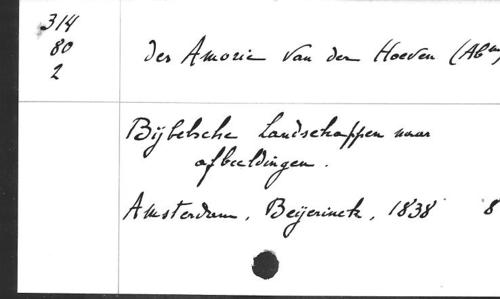 314
80
2
des Amorie van der Hoeven (Abm)
Bijbelsche Landschappen naar
afbeeldingen.
Amsterdam, Beijerinck, 1838 8